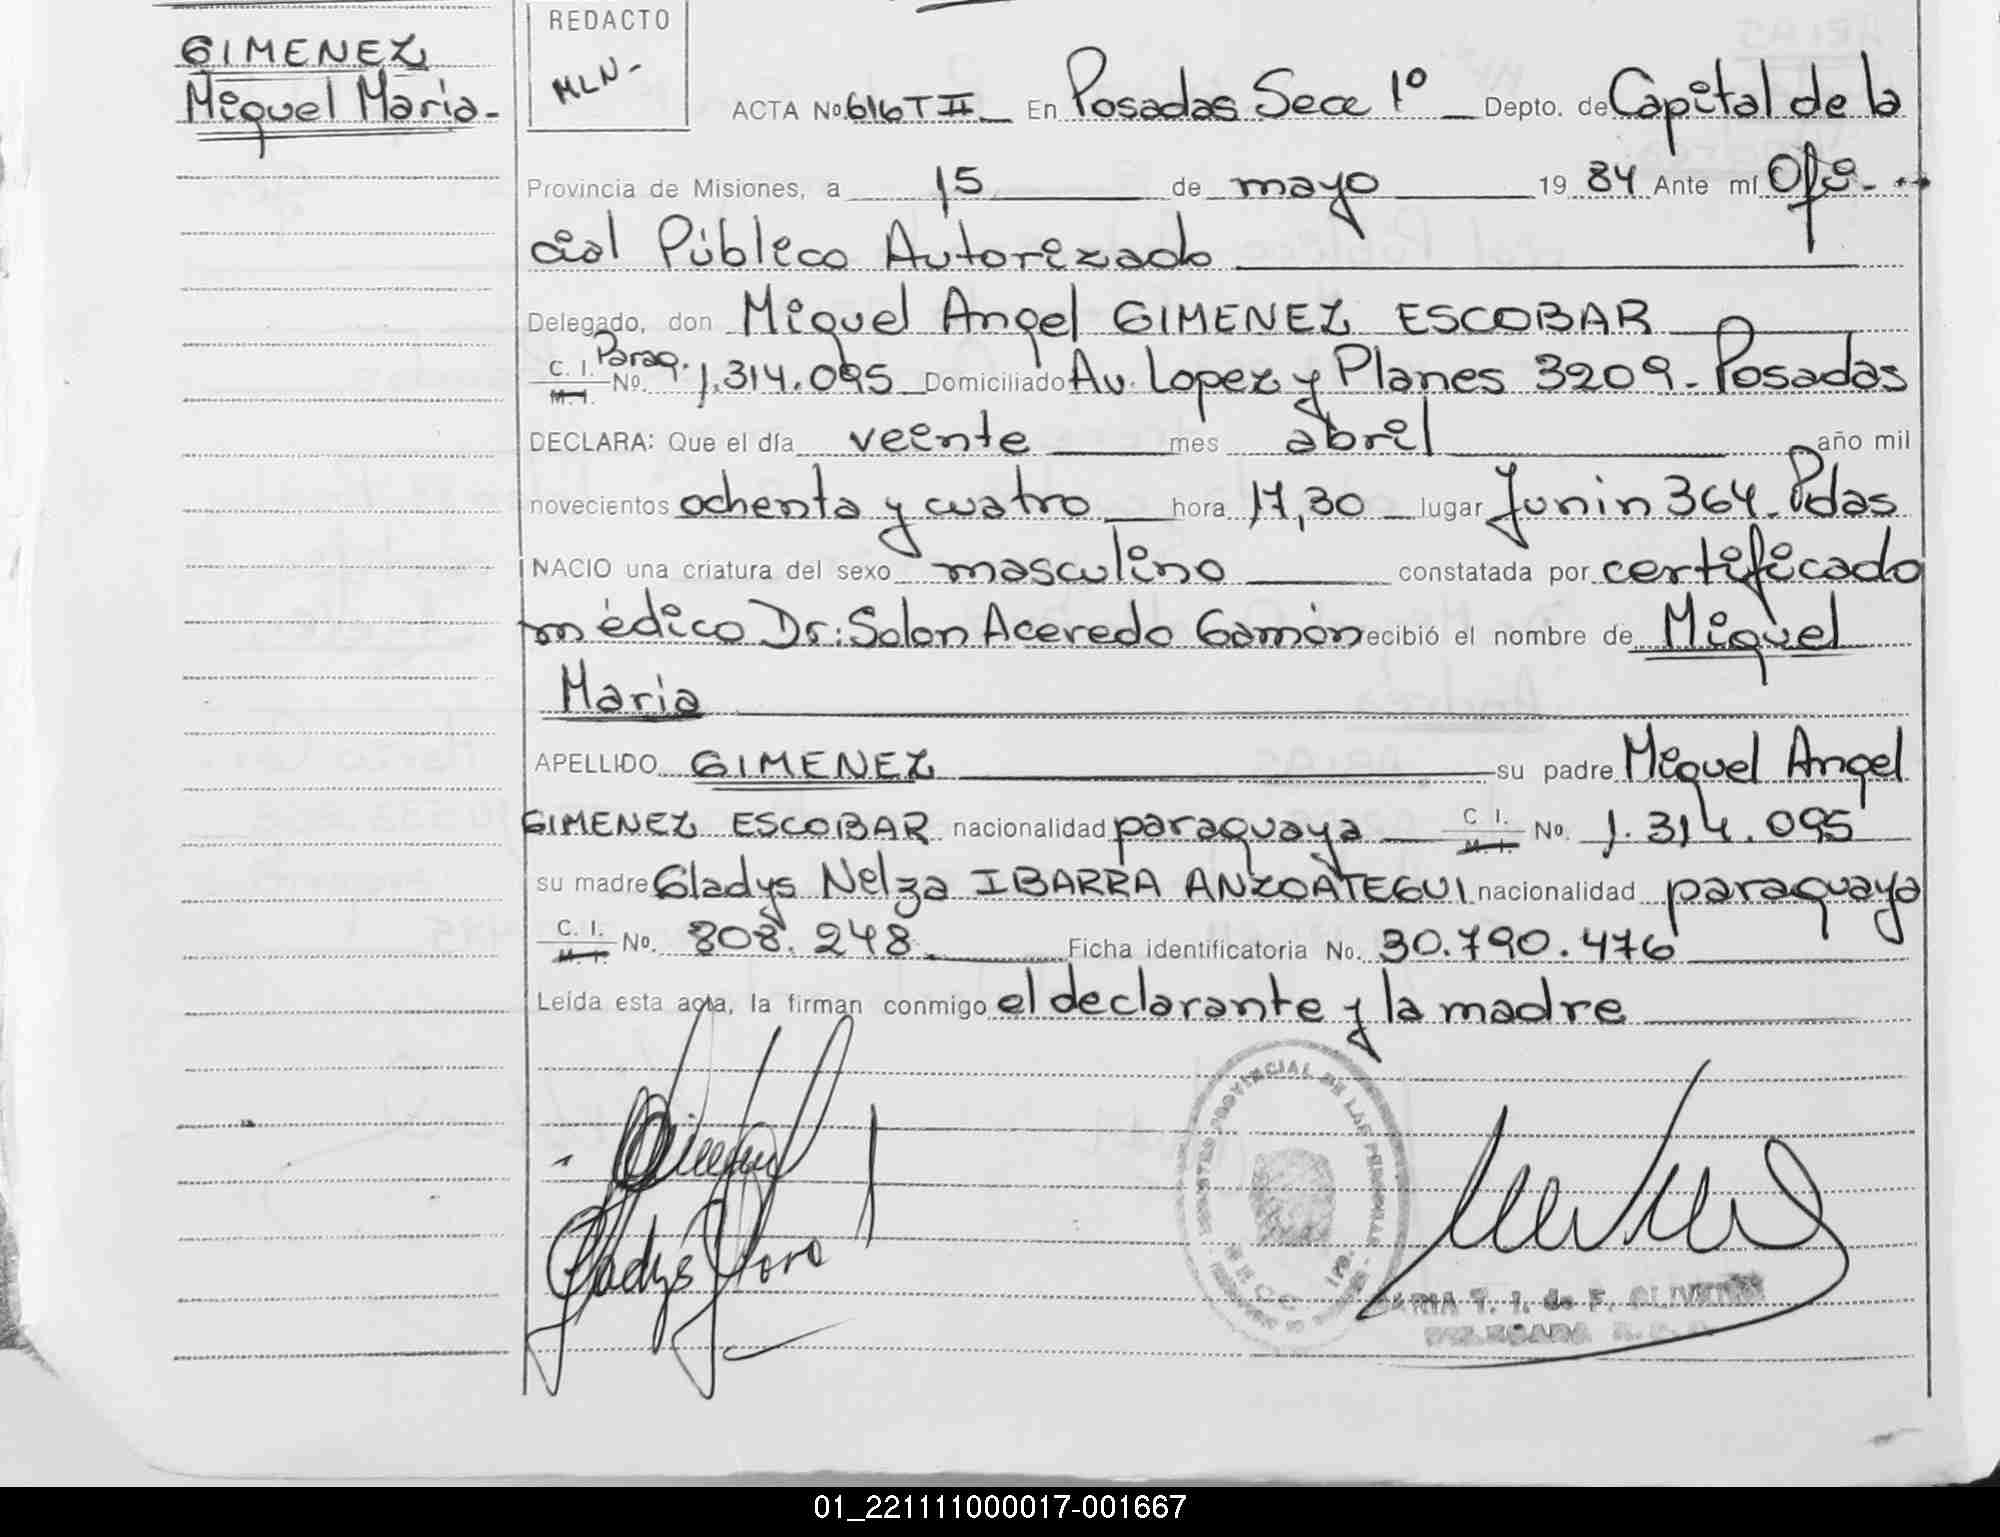 GIMENEZ
Miguel Maria-
REDACTO
MLN-
ACTA No. 616 T II En Posadas Secc 1º Depto. de Capital de la
Provincia de Misiones, a 15 de mayo 1984 Ante mí Ofi-
cial Público Autorizado
Delegado, don Miguel Angel GIMENEZ ESCOBAR
C. I. Parag. M. I. No. 1.314.095 Domiciliado Av. Lopez y Planes 3209 - Posadas
DECLARA: Que el día veinte mes abril año mil
novecientos ochenta y cuatro hora 17,30 lugar Junin 364 - Pdas
NACIO una criatura del sexo masculino constatada por certificado
médico Dr: Solon Acevedo Gamón recibió el nombre de Miguel
Maria
APELLIDO GIMENEZ su padre Miguel Angel
GIMENEZ ESCOBAR nacionalidad paraguaya C I. M. I. No. 1.314.095
su madre Gladys Nelza IBARRA ANZOATEGUI nacionalidad paraguaya
C. I. M. I. No. 808.248 Ficha identificatoria No. 30.790.476
Leída esta acta, la firman conmigo el declarante y la madre
PROVINCIAL DE LAS PERSONAS
Gladys
MARIA T. I. de F. OLIVEIRA
DELEGADA R.
01_221111000017-001667